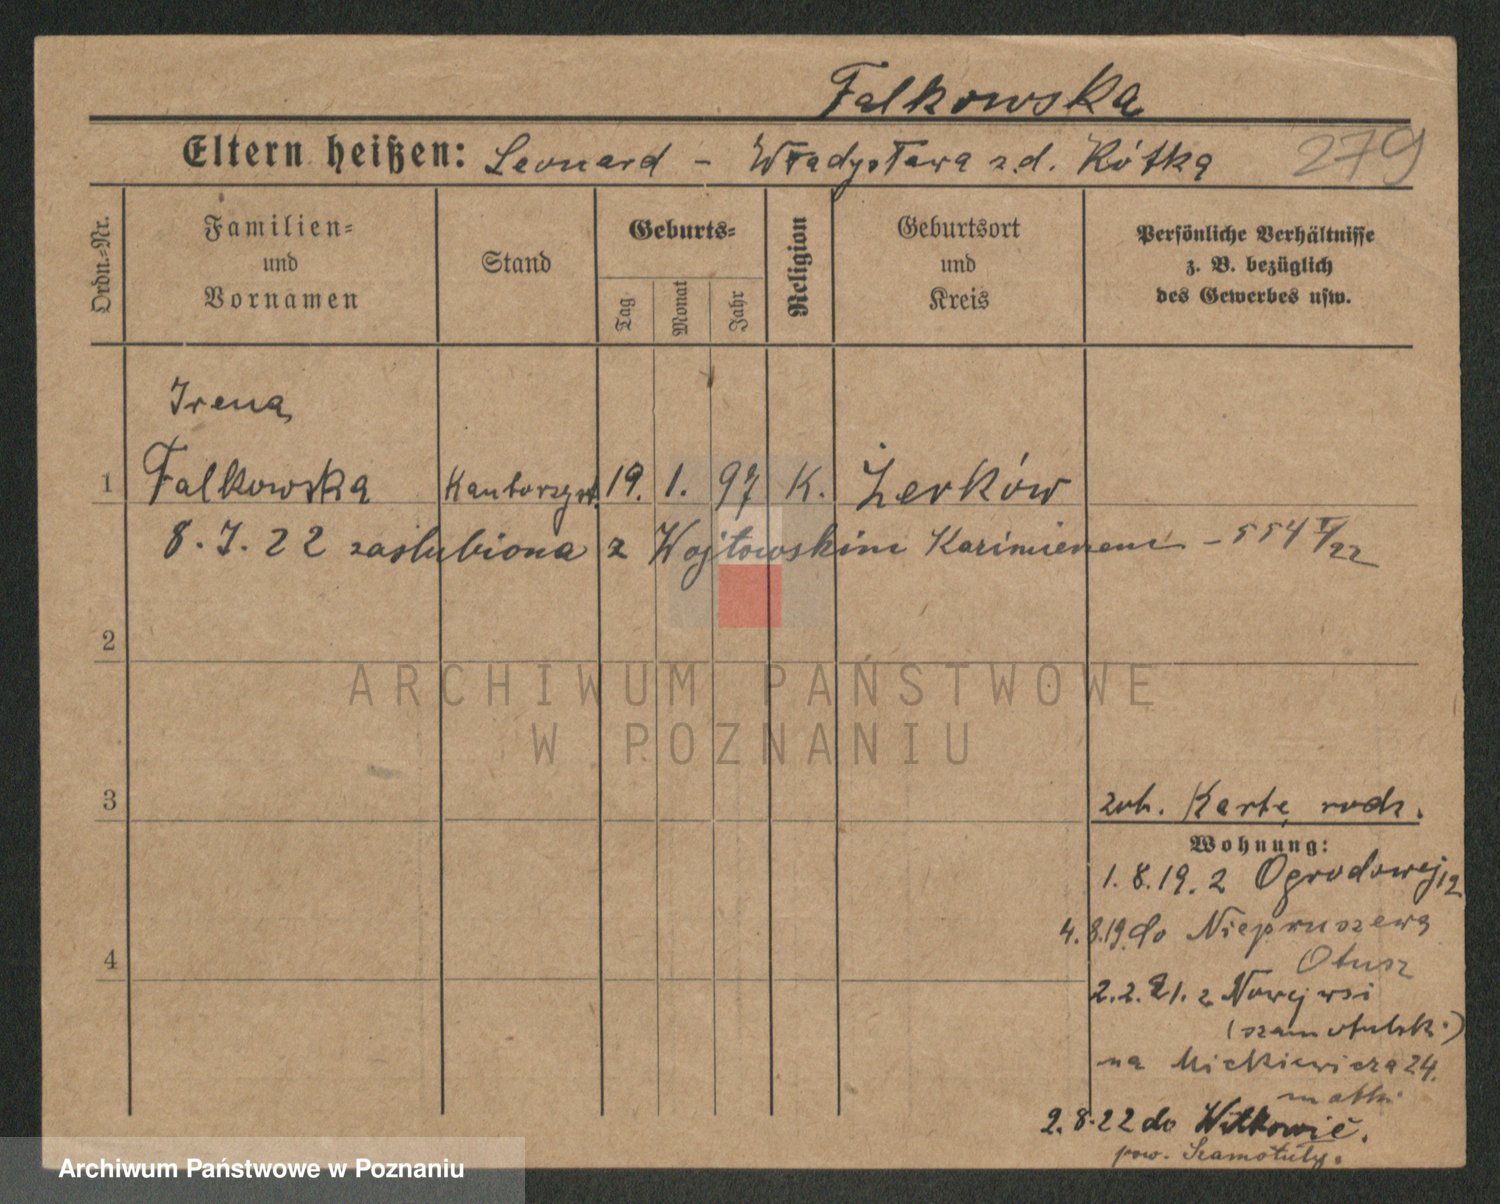 Falkowska
Eltern heißen: Leonard - Władysława z d. Kótką 279
Ordn.-Nr.
Familien-
und
Vornamen
Stand
Geburts-
Tag
Monat
Jahr
Religion
Geburtsort
und
Kreis
Persönliche Verhältnisse
z. B. bezüglich
des Gewerbes usw.
Irena
1 Falkowska Kantorzyst. 19. 1. 97 K. Żerków
8.7.22 zaślubiona z Wojtowskim Kazimierzem - 554 /22
2
ARCHIWUM PAŃSTWOWE
W POZNANIU
3
zob. Kartę rodz.
Wohnung:
1.8.19. z Ogrodowej 12
4.8.19 do Niepruszewa
4
Otusz
2.2.21. z Nowej wsi
(szamotulsk.)
na Mickiewicza 24.
matki
2.8.22 do Witkowic.
pow. Szamotuły.
Archiwum Państwowe w Poznaniu